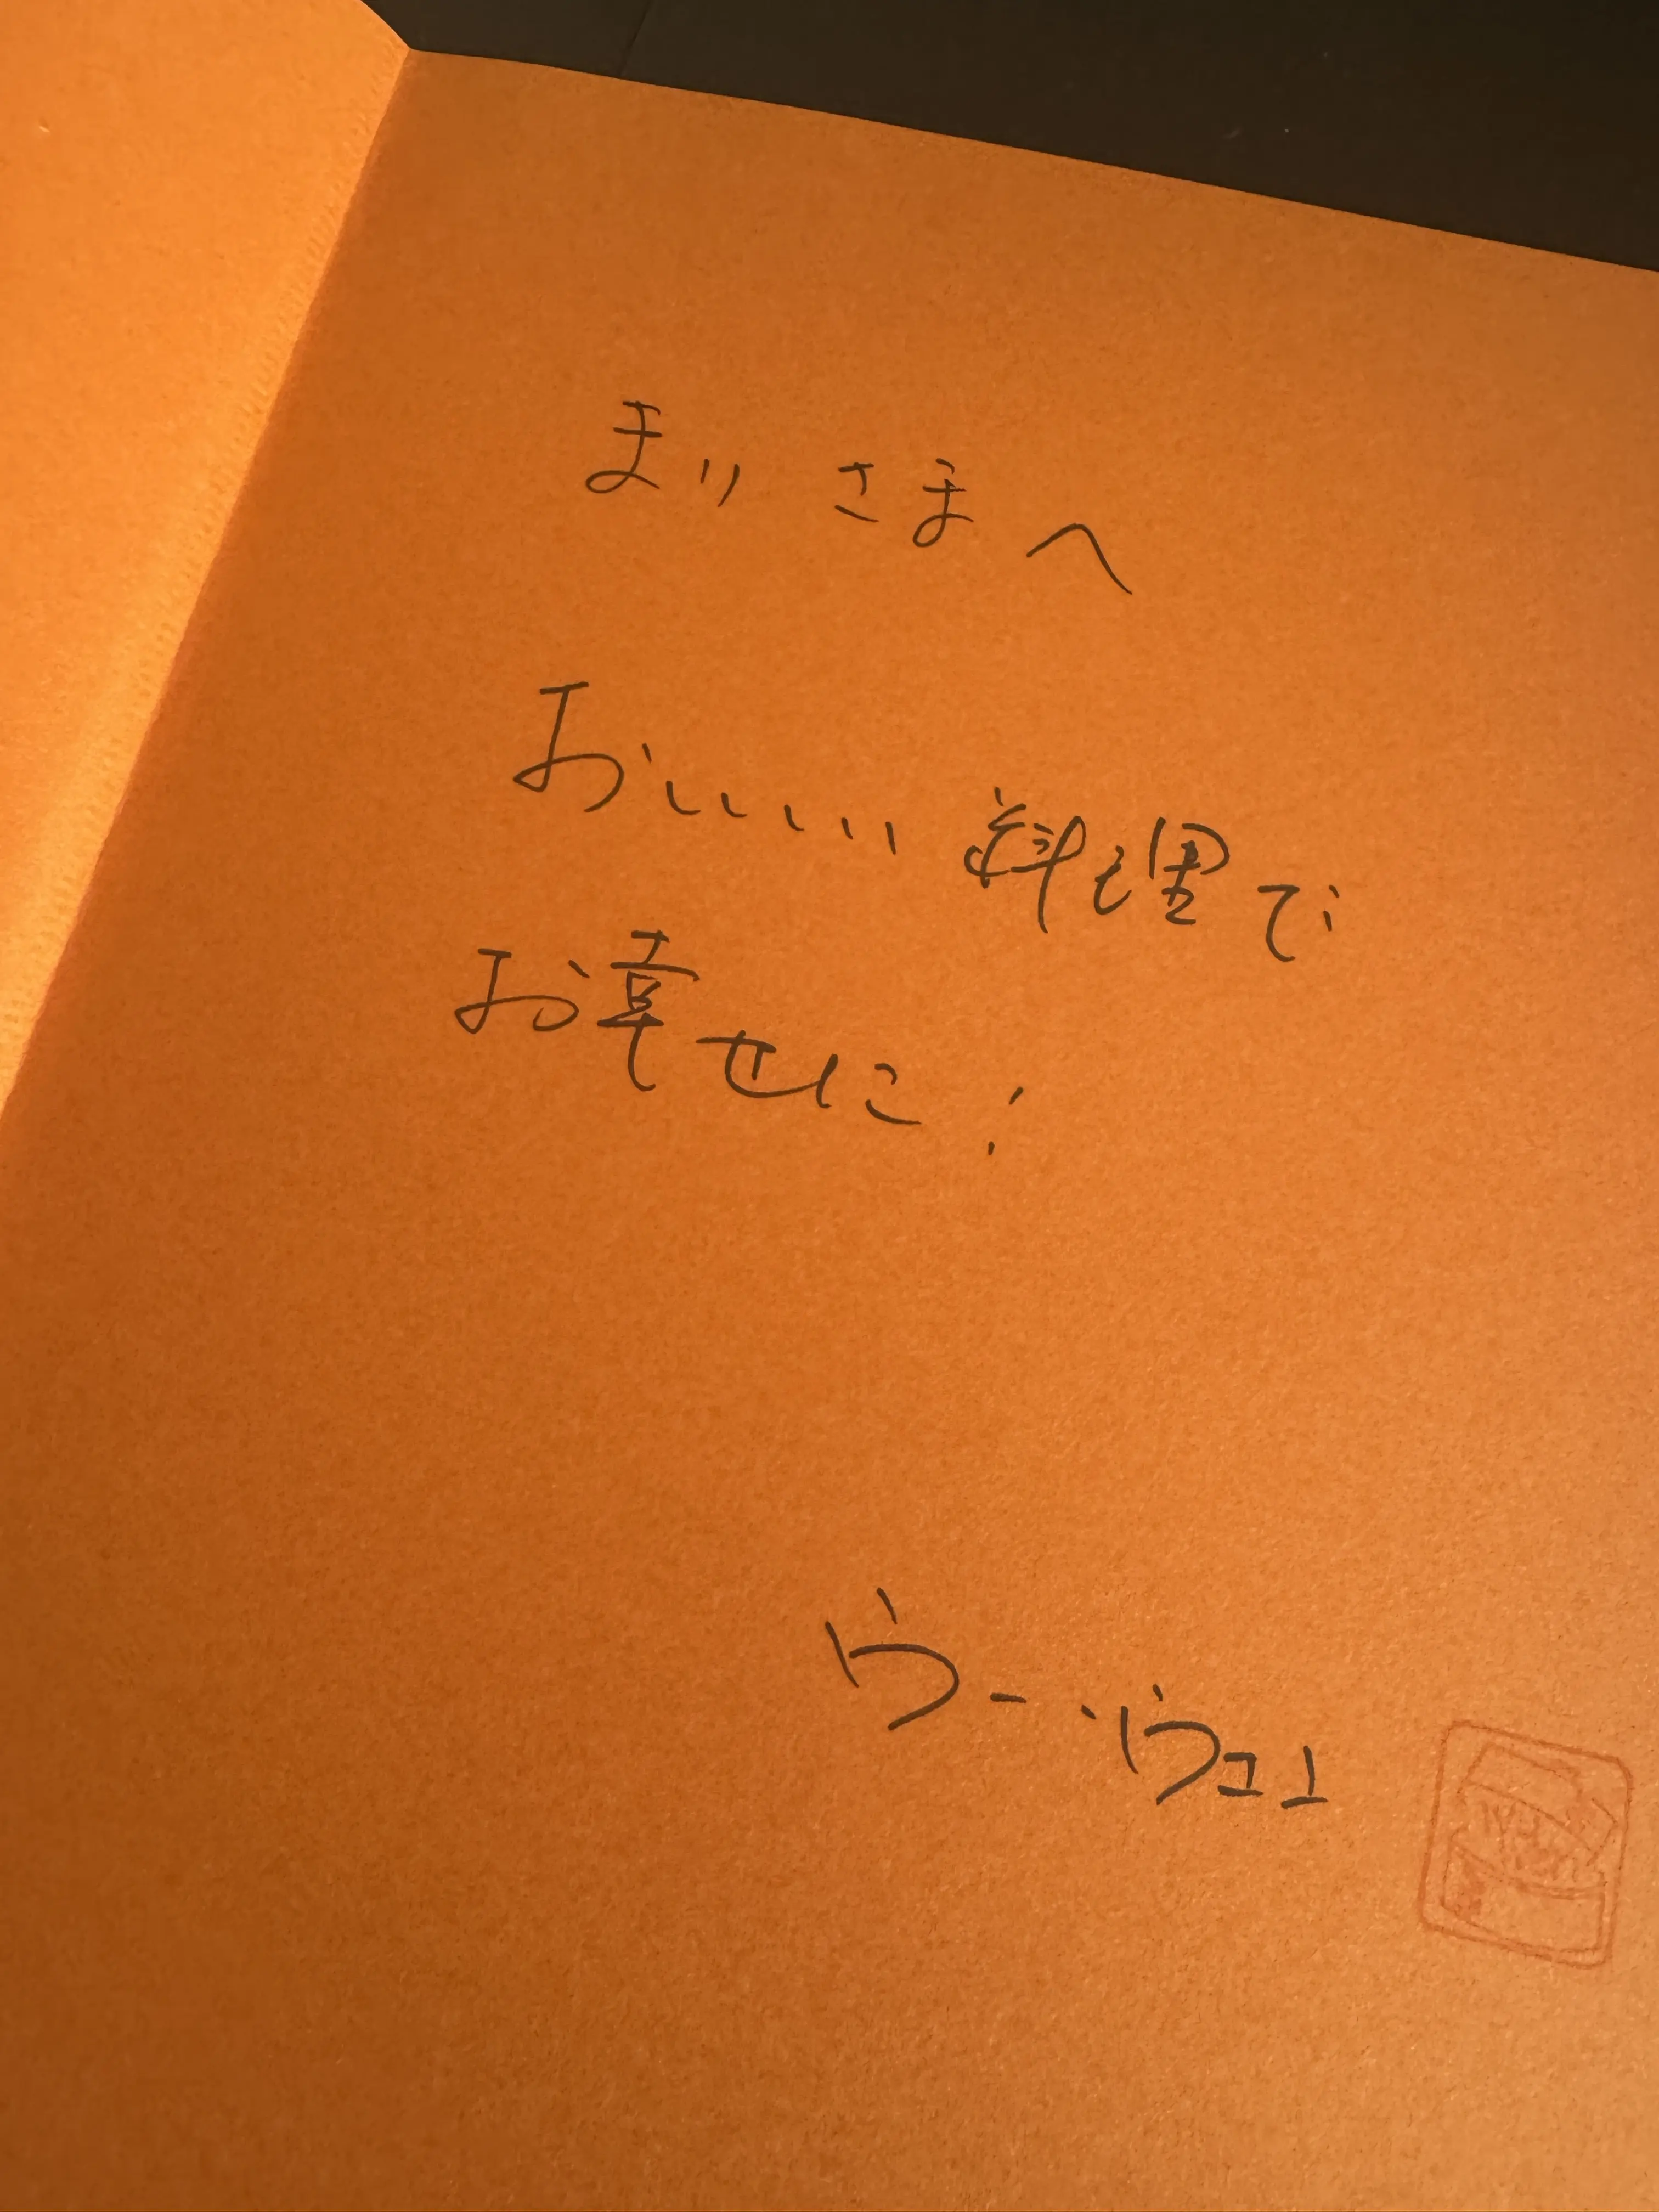 まりさまへ
おいしい料理で
お幸せに!
ウー・ウェン